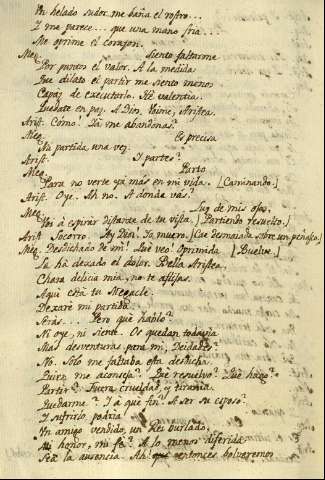 Un helado sudor me baña el rostro...
Y me parece... que una mano fria...
Me oprime el corazon.
Meg. Siento faltarme
Por puntos el valor. A la medida
Que dilato el partir me siento menos
Capaz de executarlo. Hé valentia.
Quedate en paz. A Dios. Voime, Aristea.
Arist. Cómo! Yá me abandonas?
Meg. Es precisa
Mi partida una vez.
Arist. Y partes?
Meg. Parto
Para no verte ya más en mi vida. [Caminando.]
Arist. Oye. Ah no. A donde vás?
Meg. Luz de mis ojos,
Voi à espirar distante de tu vista. [Partiendo resuelto.]
Arist. Socorro Ay Dios! Yo muero. [Cae desmaiada sobre un peñasco.]
Meg. Desdichado de mi! Qué veo! Oprimida [Buelve.]
La ha dexado el dolor. Bella Aristea.
Chara delicia mia, no te aflijas.
Aqui està tu Megacle.
Dexaré mi partida.
Serás... Pero què hablo?
Ni oye, ni siente. Os quedan todavia
Mas desventuras para mi, Deidades?
No. Solo me faltaba esta desdicha.
Quien me aconseja? Què resuelvo? Què hago?
Partir? Fuera crueldad, y tirania.
Quedarme? Y à què fin? A ser su esposo?
Y sufrirlo podria
Un amigo vendido, un Rei burlado,
Mi honor, mi fe? A lo menos diferida
Sea la ausencia. Ah! que entonces bolveremos